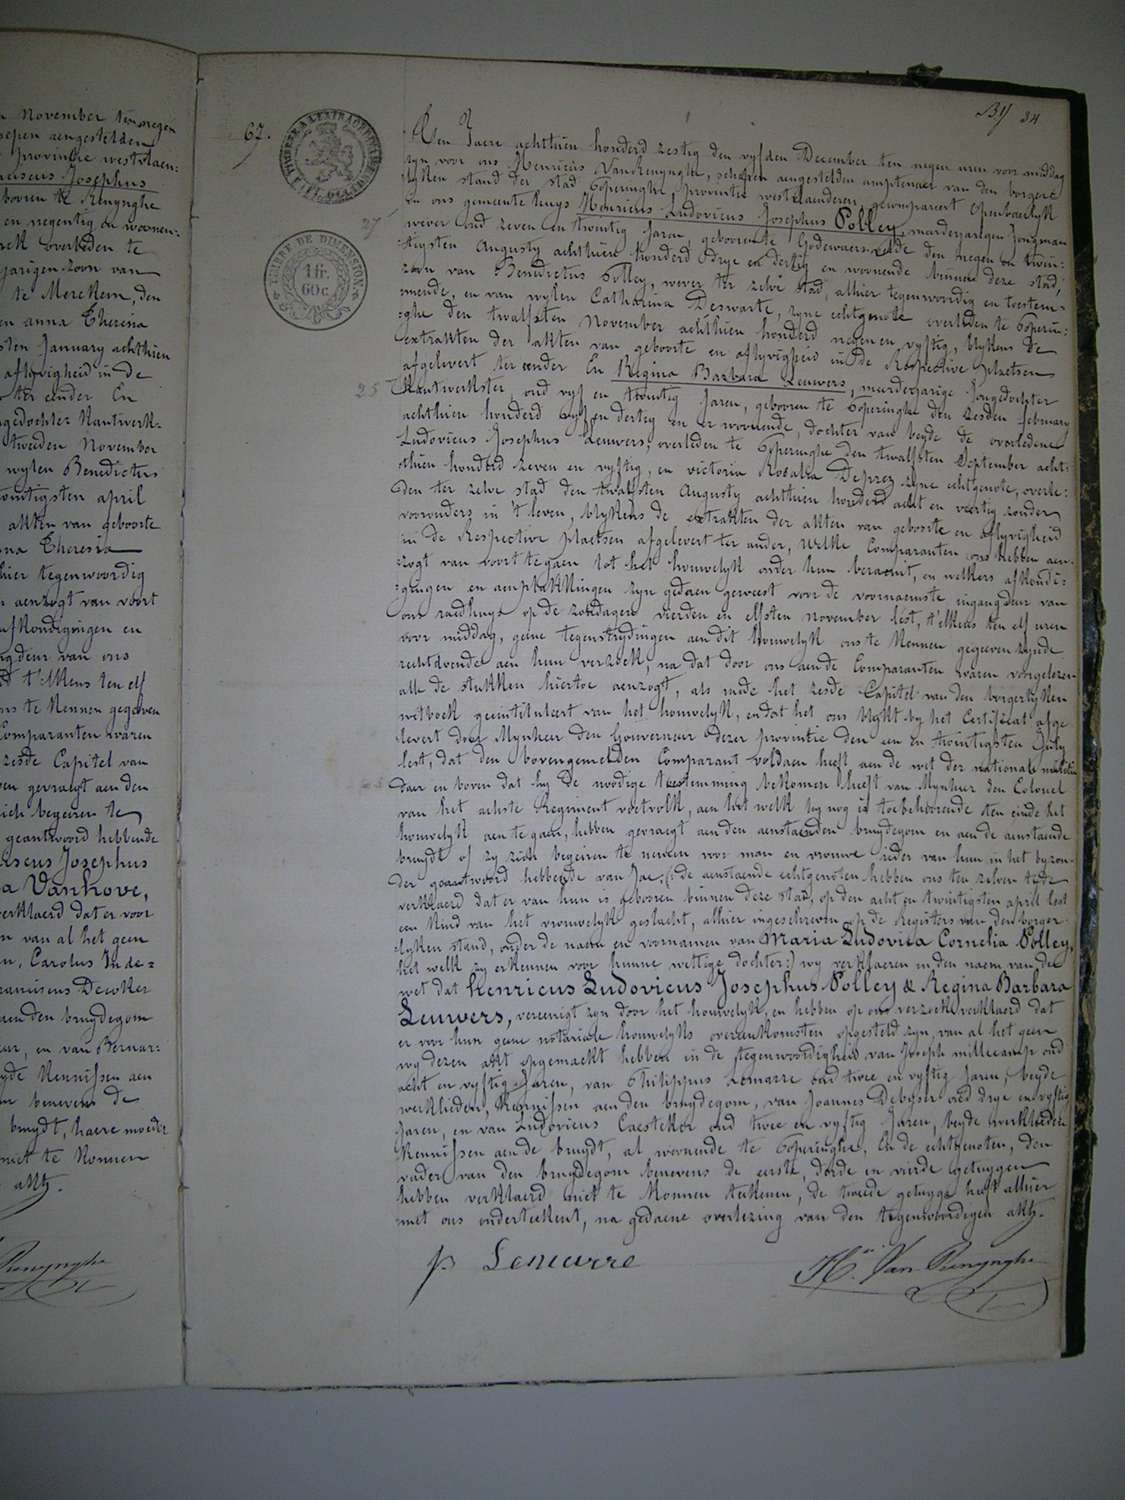 n November ten negen
sepen aengestelden
provintie westvlaen:
nciscus Josephus
boren te Renynghe
en negentig en woonen:
rck overleden te
jarigen zoon van
te Merckem, den
en anna Theresia
sten January achthien
aflyvigheid in de
ter einder En
ngedochter Kantwerk:
tweeden November
wylen Benedictus
wintigsten april
akten van geboorte
nna Theresia
hier tegenwoordig
n aenzogt van voort
afkondigingen en
ngdeur van ons
d t'elkens ten elf
ns te kennen gegeven
Comparanten waren
zesde Capitel van
en gevraegt aen den
zich begeiren te
geantwoord hebbende
ciscus Josephus
a Vanhove,
verklaerd dat er voor
n van al het geen
n, Carolus Inde=
ranciscus Decoker
aen den bruydegom
eur, en van Bernar:
yde kennissen aen
benevens de
bruydt, haere moeder
niet te konnen
akte.
Renynghe
67.
TIMBRE EXTRAORDINAIRE
TIMBRE DE DIMENSION
1 fr.
60 c.
34
27
Den Jaere achthien honderd zestig den vyfden December ten negen uren voor middag
zyn voor ons Henricus VanRenynghe, schepen aengestelden amptenaer van den borger:
lyken stand der stad Poperinghe, provintie westvlaenderen, gecompareert openbaerlyk
in ons gemeente huys Henricus Ludovicus Josephus Polley, meerderjarigen jongman
wever oud zeven en twintig Jaren, geboren te Godewaersvelde den negen en twin:
tigsten Augusty achthien honderd drye en dertig en woonende binnen deze stad,
zoon van Benedictus Polley, wever ter zelve stad, alhier tegenwoordig en toestem:
mende, en van wylen Catharina Deswarte, zyne echtgenote overleden te Poperin:
ghe den twalfsten November achthien honderd negen en vyftig, blykens de
extrakten der akten van geboorte en aflyvigheid in de Respective plaetsen
afgelevert ter einder En Regina Barbara Leuwers, meerderjarige Jongedochter
25
Kantwerkster, oud vyf en twintig Jaren, geboren te Poperinghe den zesden february
achthien honderd vyf en dertig en er woonende, dochter van beyde de overledene
Ludovicus Josephus Leuwers, overleden te Poperinghe den twalfsten September acht:
thien honderd zeven en vyftig, en victoria Rosalia Deprez zyne echtgenote, overle:
den ter zelve stad den twalfsten Augusty achthien honderd acht en veertig zonder
voorouders in 't leven, blykens de extrakten der akten van geboorte en aflyvigheid
in de Respective plaetsen afgelevert ter ander, Welke Comparanten ons hebben aen:
zogt van voort te gaen tot het houwelyk onder hun beraemt, en welkers afkondi:
gingen en aenplakkingen zyn gedaen geweest voor de voornaemste ingangdeur van
ons raedhuys op de zondagen vierden en elfsten november lest, t'elkens ten elf uren
voor middag, geene tegenstrydingen aen dit houwelyk ons te kennen gegeven zynde
rechtdoende aen hun verzoek, na dat door ons aen de Comparanten waren voorgelezen
alle de stukken hiertoe aenzogt, als mede het zesde Capitel van den borgerlyken
wetboek geïntituleert van het houwelyk, en dat het ons blykt by het Certificat afge
levert door Mynheer den Gouverneur dezer provintie den een en twintigsten July
lest, dat den bovengemelden Comparant voldaen heeft aen de wet der nationale militie
daer en boven dat hy de noodige toestemming bekomen heeft van Mynheer den Colonel
van het achste Regiment voetvolk, aen het welk hy nog is toebehoorende ten einde het
houwelyk aen te gaen, hebben gevraegt aen den aenstaenden bruydegom en aen de aenstaende
bruydt of zy zich begeiren te nemen voor man en vrouwe ieder van hun in het byzon:
der geantwoord hebbende van Jae; (: de aenstaende echtgenoten hebben ons ten zelven tyde
verklaerd dat er van hun is geboren binnen deze stad, op den acht en twintigsten april lest
een kind van het vrouwelyk geslacht, alhier ingeschreven op de Registers van den borger
lyken stand, onder de naem en voornamen van Maria Ludovica Cornelia Polley,
het welk zy erkennen voor hunne wettige dochter:) wy verklaeren in den naem van de
wet dat henricus Ludovicus Josephus Polley & Regina Barbara
Leuwers, vereenigt zyn door het houwelyk, en hebben op ons verzoek verklaerd dat
er voor hun geene notariale houwelyks overeenkomsten opgesteld zyn, van al het geen
wy dezen akt opgemaekt hebben in de tegenwoordigheid van Joseph millecamp oud
acht en vyftig Jaren, van Philippus Lemarre oud twee en vyftig Jaren, beyde
werklieden, kennissen aen den bruydegom, van Joannes Debyser oud drye en vyftig
Jaren, en van Ludovicus Caesteker oud twee en vyftig Jaren, beyde werklieden
kennissen aen de bruydt, al woonende te Poperinghe, en de echtgenoten, den
vader van den bruydegom benevens de eerste, derde en vierde getuygen
hebben verklaerd niet te konnen teekenen, de tweede getuyge heeft alhier
met ons onderteekent, na gedaene overlezing van den tegenwoordigen akte.
p Lemarre
Hri Van Renynghe